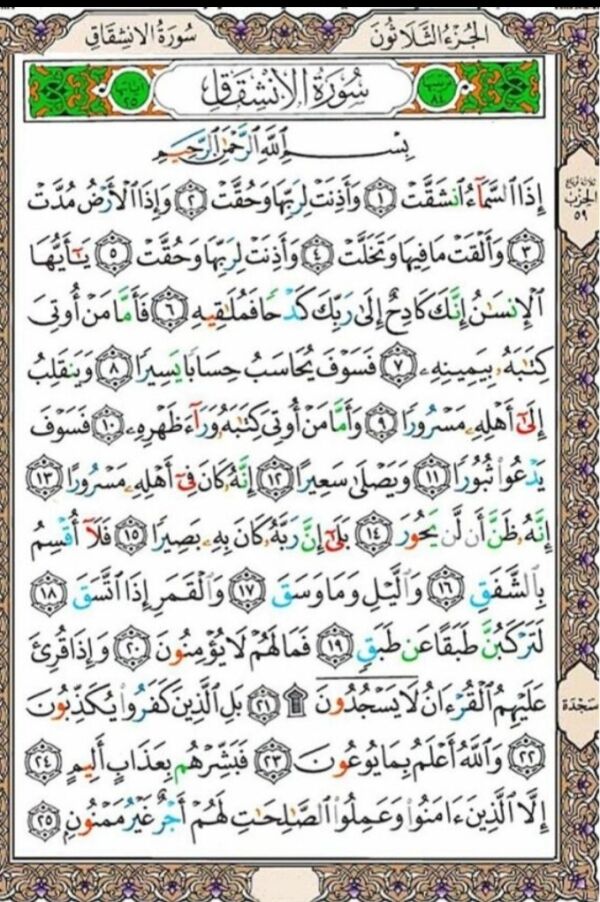 سُورَةُ الِانشِقَاقِ الجُزْءُ الثَّلَاثُونَ
ترتيبها ٨٤ سُورَةُ الِانشِقَاقِ آياتها ٢٥
بِسْمِ اللَّهِ الرَّحْمَٰنِ الرَّحِيمِ
إِذَا السَّمَآءُ انشَقَّتْ ١ وَأَذِنَتْ لِرَبِّهَا وَحُقَّتْ ٢ وَإِذَا الْأَرْضُ مُدَّتْ
٣ وَأَلْقَتْ مَا فِيهَا وَتَخَلَّتْ ٤ وَأَذِنَتْ لِرَبِّهَا وَحُقَّتْ ٥ يَٰٓأَيُّهَا
الْإِنسَٰنُ إِنَّكَ كَادِحٌ إِلَىٰ رَبِّكَ كَدْحًا فَمُلَٰقِيهِ ٦ فَأَمَّا مَنْ أُوتِيَ
كِتَٰبَهُۥ بِيَمِينِهِۦ ٧ فَسَوْفَ يُحَاسَبُ حِسَابًا يَسِيرًا ٨ وَيَنقَلِبُ
إِلَىٰٓ أَهْلِهِۦ مَسْرُورًا ٩ وَأَمَّا مَنْ أُوتِيَ كِتَٰبَهُۥ وَرَآءَ ظَهْرِهِۦ ١٠ فَسَوْفَ
يَدْعُوا۟ ثُبُورًا ١١ وَيَصْلَىٰ سَعِيرًا ١٢ إِنَّهُۥ كَانَ فِيٓ أَهْلِهِۦ مَسْرُورًا ١٣
إِنَّهُۥ ظَنَّ أَن لَّن يَحُورَ ١٤ بَلَىٰٓ إِنَّ رَبَّهُۥ كَانَ بِهِۦ بَصِيرًا ١٥ فَلَآ أُقْسِمُ
بِالشَّفَقِ ١٦ وَالَّيْلِ وَمَا وَسَقَ ١٧ وَالْقَمَرِ إِذَا اتَّسَقَ ١٨
لَتَرْكَبُنَّ طَبَقًا عَن طَبَقٍ ١٩ فَمَا لَهُمْ لَا يُؤْمِنُونَ ٢٠ وَإِذَا قُرِئَ
عَلَيْهِمُ الْقُرْءَانُ لَا يَسْجُدُونَ ۩ ٢١ بَلِ الَّذِينَ كَفَرُوا۟ يُكَذِّبُونَ
٢٢ وَاللَّهُ أَعْلَمُ بِمَا يُوعُونَ ٢٣ فَبَشِّرْهُم بِعَذَابٍ أَلِيمٍ ٢٤
إِلَّا الَّذِينَ ءَامَنُوا۟ وَعَمِلُوا۟ الصَّٰلِحَٰتِ لَهُمْ أَجْرٌ غَيْرُ مَمْنُونٍ ٢٥
الحزب
٥٩
سَجْدَة